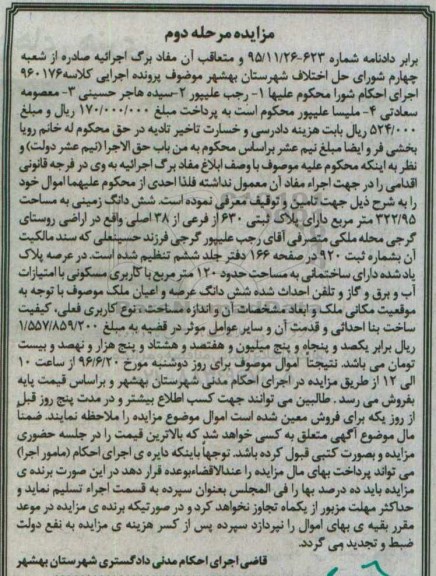 مزایده مرحله دوم
برابر دادنامه شماره ۶۲۳-۹۵/۱۱/۲۶ و متعاقب آن مفاد برگ اجرائیه صادره از شعبه
چهارم شورای حل اختلاف شهرستان بهشهر موضوف پرونده اجرایی کلاسه ۹۶۰۱۷۶
اجرای احکام شورا محکوم علیها ۱- رجب علیپور ۲-سیده هاجر حسینی ۳- معصومه
سعادتی ۴- ملیسا علیپور محکوم است به پرداخت مبلغ ۱۷۰/۰۰۰/۰۰۰ ریال و مبلغ
۵۲۴/۰۰۰ ریال بابت هزینه دادرسی و خسارت تاخیر تادیه در حق محکوم له خانم رویا
بخشی فر و ایضا مبلغ نیم عشر براساس محکوم به من باب حق الاجرا (نیم عشر دولت) و
نظر به اینکه محکوم علیه موصوف با وصف ابلاغ مفاد برگ اجرائیه به وی در فرجه قانونی
اقدامی را در جهت اجراء مفاد آن معمول نداشته فلذا احدی از محکوم علیهما اموال خود
را به شرح ذیل جهت تامین و توقیف معرفی نموده است. شش دانگ زمینی به مساحت
۳۲۲/۹۵ متر مربع دارای پلاک ثبتی ۶۳۰ از فرعی از ۳۸ اصلی واقع در اراضی روستای
گرجی محله ملکی متصرفی آقای رجب علیپور گرجی فرزند حسینعلی که سند مالکیت
آن بشماره ثبت ۹۲۰ در صفحه ۱۶۶ دفتر جلد ششم تنظیم شده است. در عرصه پلاک
یاد شده دارای ساختمانی به مساحت حدود ۱۲۰ متر مربع با کاربری مسکونی با امتیازات
آب و برق و گاز و تلفن احداث شده شش دانگ عرصه و اعیان ملک موصوف با توجه به
موقعیت مکانی ملک و ابعاد مشخصات آن و اندازه مساحت، نوع کاربری فعلی، کیفیت
ساخت بنا احداثی و قدمت آن و سایر عوامل موثر در قضیه به مبلغ ۱/۵۵۷/۸۵۹/۲۰۰
ریال برابر یکصد و پنجاه و پنج میلیون و هفتصد و هشتاد و پنج هزار و نهصد و بیست
تومان می باشد. نتیجتاً اموال موصوف برای روز دوشنبه مورخ ۹۶/۶/۲۰ از ساعت ۱۰
الی ۱۲ از طریق مزایده در اجرای احکام مدنی شهرستان بهشهر و براساس قیمت پایه
بفروش می رسد. طالبین می توانند جهت کسب اطلاع بیشتر و در مدت پنج روز قبل
از روز یکه برای فروش معین شده است اموال موضوع مزایده را ملاحظه نمایند. ضمناً
مال موضوع آگهی متعلق به کسی خواهد شد که بالاترین قیمت را در جلسه حضوری
مزایده و بصورت کتبی قبول کرده باشد. توجهاً باینکه دایره ی اجرای احکام (مامور اجرا)
می تواند پرداخت بهای مال مزایده را عندالاقتضاء بوعده قرار دهد در این صورت برنده ی
مزایده باید ده درصد بها را فی المجلس بعنوان سپرده به قسمت اجراء تسلیم نماید و
حداکثر مهلت مزبور از یکماه تجاوز نخواهد کرد و در صورتیکه برنده ی مزایده در موعد
مقرر بقیه ی بهای اموال را نپردازد سپرده پس از کسر هزینه ی مزایده به نفع دولت
ضبط و تجدید می گردد.
قاضی اجرای احکام مدنی دادگستری شهرستان بهشهر